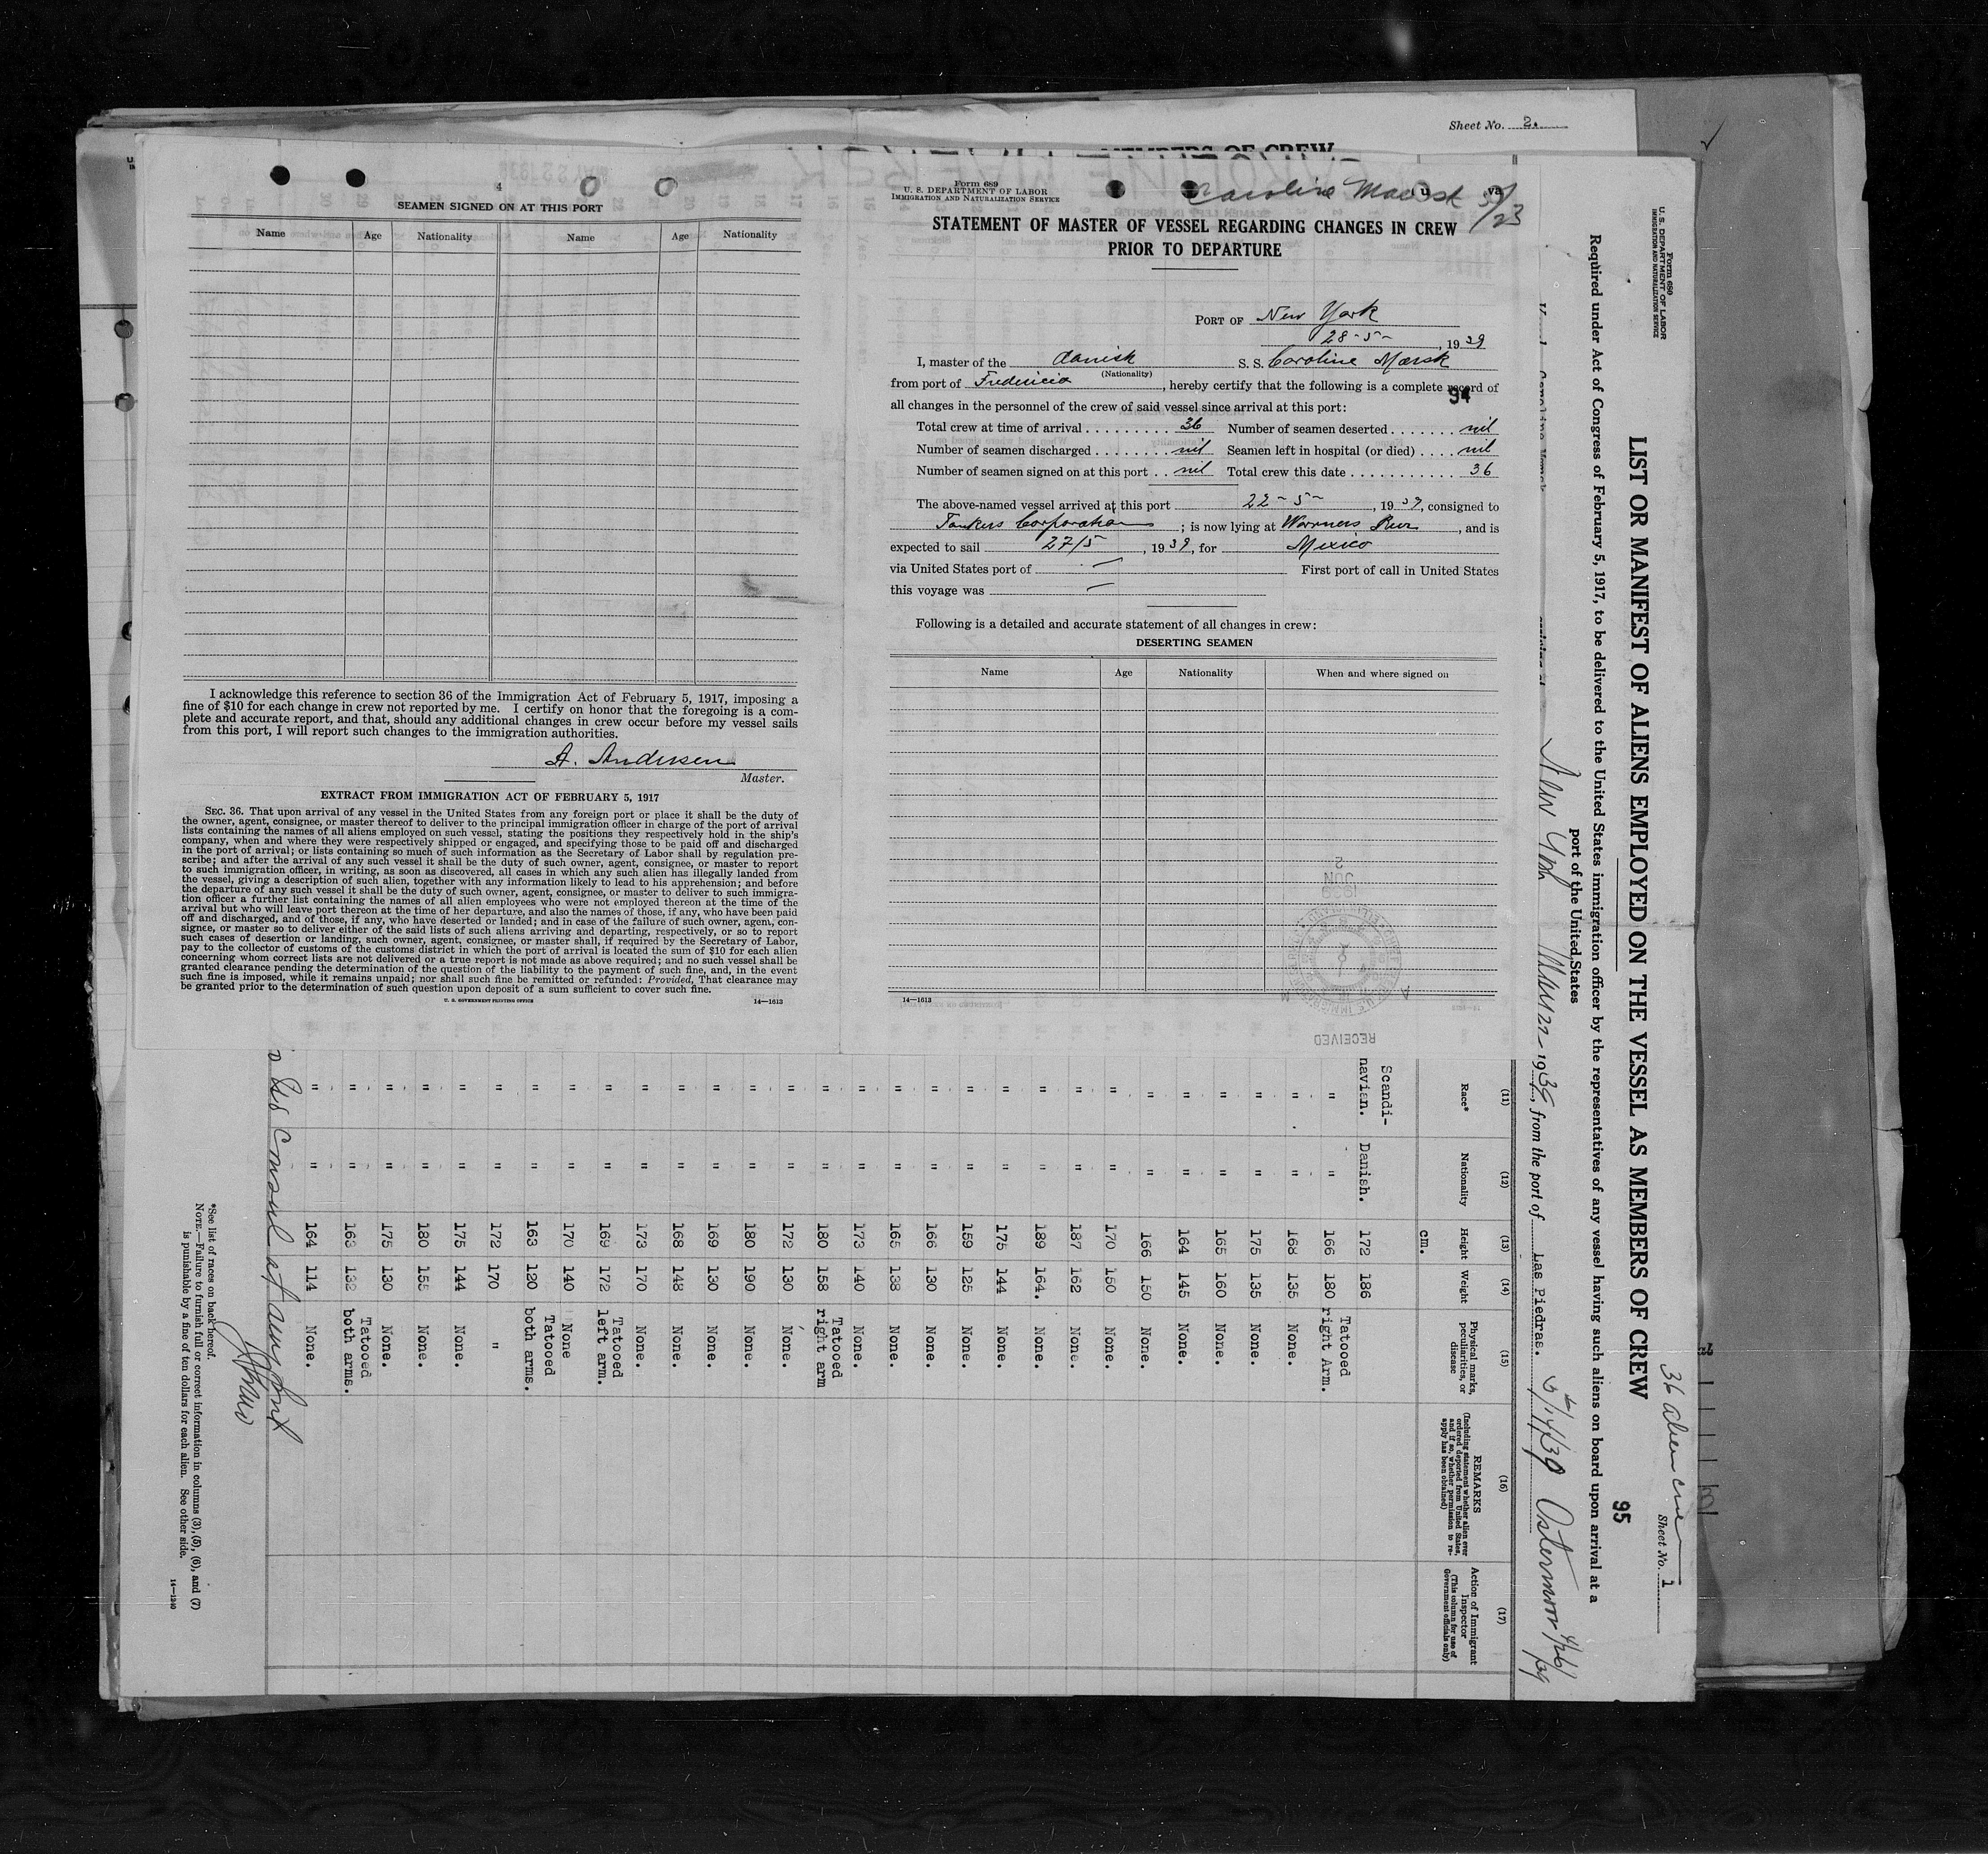 Sheet No. 2.
MEMBERS OF CREW
4
SEAMEN SIGNED ON AT THIS PORT
Name Age Nationality Name Age Nationality
I acknowledge this reference to section 36 of the Immigration Act of February 5, 1917, imposing a
fine of $10 for each change in crew not reported by me. I certify on honor that the foregoing is a com-
plete and accurate report, and that, should any additional changes in crew occur before my vessel sails
from this port, I will report such changes to the immigration authorities.
A. Andersen
Master.
EXTRACT FROM IMMIGRATION ACT OF FEBRUARY 5, 1917
SEC. 36. That upon arrival of any vessel in the United States from any foreign port or place it shall be the duty of
the owner, agent, consignee, or master thereof to deliver to the principal immigration officer in charge of the port of arrival
lists containing the names of all aliens employed on such vessel, stating the positions they respectively hold in the ship's
company, when and where they were respectively shipped or engaged, and specifying those to be paid off and discharged
in the port of arrival; or lists containing so much of such information as the Secretary of Labor shall by regulation pre-
scribe; and after the arrival of any such vessel it shall be the duty of such owner, agent, consignee, or master to report
to such immigration officer, in writing, as soon as discovered, all cases in which any such alien has illegally landed from
the vessel, giving a description of such alien, together with any information likely to lead to his apprehension; and before
the departure of any such vessel it shall be the duty of such owner, agent, consignee, or master to deliver to such immigra-
tion officer a further list containing the names of all alien employees who were not employed thereon at the time of the
arrival but who will leave port thereon at the time of her departure, and also the names of those, if any, who have been paid
off and discharged, and of those, if any, who have deserted or landed; and in case of the failure of such owner, agent, con-
signee, or master so to deliver either of the said lists of such aliens arriving and departing, respectively, or so to report
such cases of desertion or landing, such owner, agent, consignee, or master shall, if required by the Secretary of Labor,
pay to the collector of customs of the customs district in which the port of arrival is located the sum of $10 for each alien
concerning whom correct lists are not delivered or a true report is not made as above required; and no such vessel shall be
granted clearance pending the determination of the question of the liability to the payment of such fine, and, in the event
such fine is imposed, while it remains unpaid; nor shall such fine be remitted or refunded: Provided, That clearance may
be granted prior to the determination of such question upon deposit of a sum sufficient to cover such fine.
U. S. GOVERNMENT PRINTING OFFICE 14—1613
Form 689
U. S. DEPARTMENT OF LABOR
IMMIGRATION AND NATURALIZATION SERVICE
Caroline Maersk 5/23
STATEMENT OF MASTER OF VESSEL REGARDING CHANGES IN CREW
PRIOR TO DEPARTURE
PORT OF New York
28-5-, 1939
I, master of the danish S. S. Caroline Mærsk
(Nationality)
from port of Fredericia, hereby certify that the following is a complete record of
94
all changes in the personnel of the crew of said vessel since arrival at this port:
Total crew at time of arrival 36 Number of seamen deserted nil
Number of seamen discharged nil Seamen left in hospital (or died) nil
Number of seamen signed on at this port nil Total crew this date 36
The above-named vessel arrived at this port 22-5-, 1939, consigned to
Tankers Corporation; is now lying at Warners Pier, and is
expected to sail 27/5, 1939, for Mexico
via United States port of — First port of call in United States
this voyage was —
Following is a detailed and accurate statement of all changes in crew:
DESERTING SEAMEN
Name Age Nationality When and where signed on
14—1613
RECEIVED
2 JUN 1939
Form 680
U. S. DEPARTMENT OF LABOR
IMMIGRATION AND NATURALIZATION SERVICE
36 alien crew
Sheet No. 1
LIST OR MANIFEST OF ALIENS EMPLOYED ON THE VESSEL AS MEMBERS OF CREW
95
Required under Act of Congress of February 5, 1917, to be delivered to the United States immigration officer by the representatives of any vessel having such aliens on board upon arrival at a
port of the United States
New York May 22 1939, from the port of Las Piedras. 5/14/39 Ostermoor 4/26/39
(11) (12) (13) (14) (15) (16) (17)
Race* Nationality Height Weight Physical marks, peculiarities, or disease REMARKS (Including statement whether alien ever ordered deported from United States, and if so, whether permission to re-apply has been obtained) Action of Immigrant Inspector (This column for use of Government officials only)
cm.
Scandi-
navian. Danish. 172 186
" " 166 180 Tatooed right Arm.
" " 168 135 None.
" " 175 135 None.
" " 165 160 None.
" " 164 145 None.
" " 166 150 None.
" " 170 150 None.
" " 187 162 None.
" " 189 164. None.
" " 175 144 None.
" " 159 125 None.
" " 166 130 None.
" " 165 138 None.
" " 173 140 None.
" " 180 158 Tatooed right arm
" " 172 130 None.
" " 180 190 None.
" " 169 130 None.
" " 168 148 None.
" " 173 170 None.
" " 169 172 Tatooed left arm.
" " 170 140 None
" " 163 120 Tatooed both arms.
" " 172 170 "
" " 175 144 None.
" " 180 155 None.
" " 175 130 None.
" " 163 132 Tatooed both arms.
" " 164 114 None.
No US Consul at any port
*See list of races on back hereof.
NOTE.—Failure to furnish full or correct information in columns (3), (5), (6), and (7)
is punishable by a fine of ten dollars for each alien. See other side.
14—1240